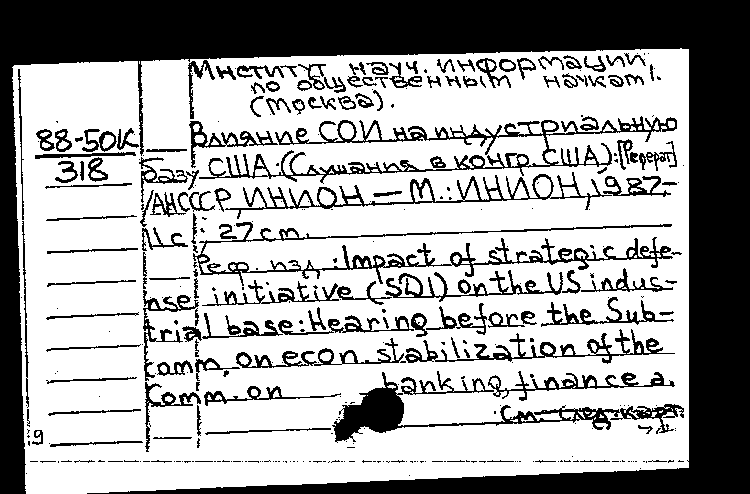 Институт науч. информации
по общественным наукам.
(Москва).
88-50К
318
Влияние СОИ на индустриальную
базу США: (Слушания в конгр. США): [Реферат]
/АН СССР, ИНИОН. — М.: ИНИОН, 1987.-
11с.; 27 cm.
Реф. изд.: Impact of strategic defe-
nse initiative (SDI) on the US indus-
trial base: Hearing before the Sub-
comm. on econ. stabilization of the
Comm. on banking, finance a.
См. след. карт.
9